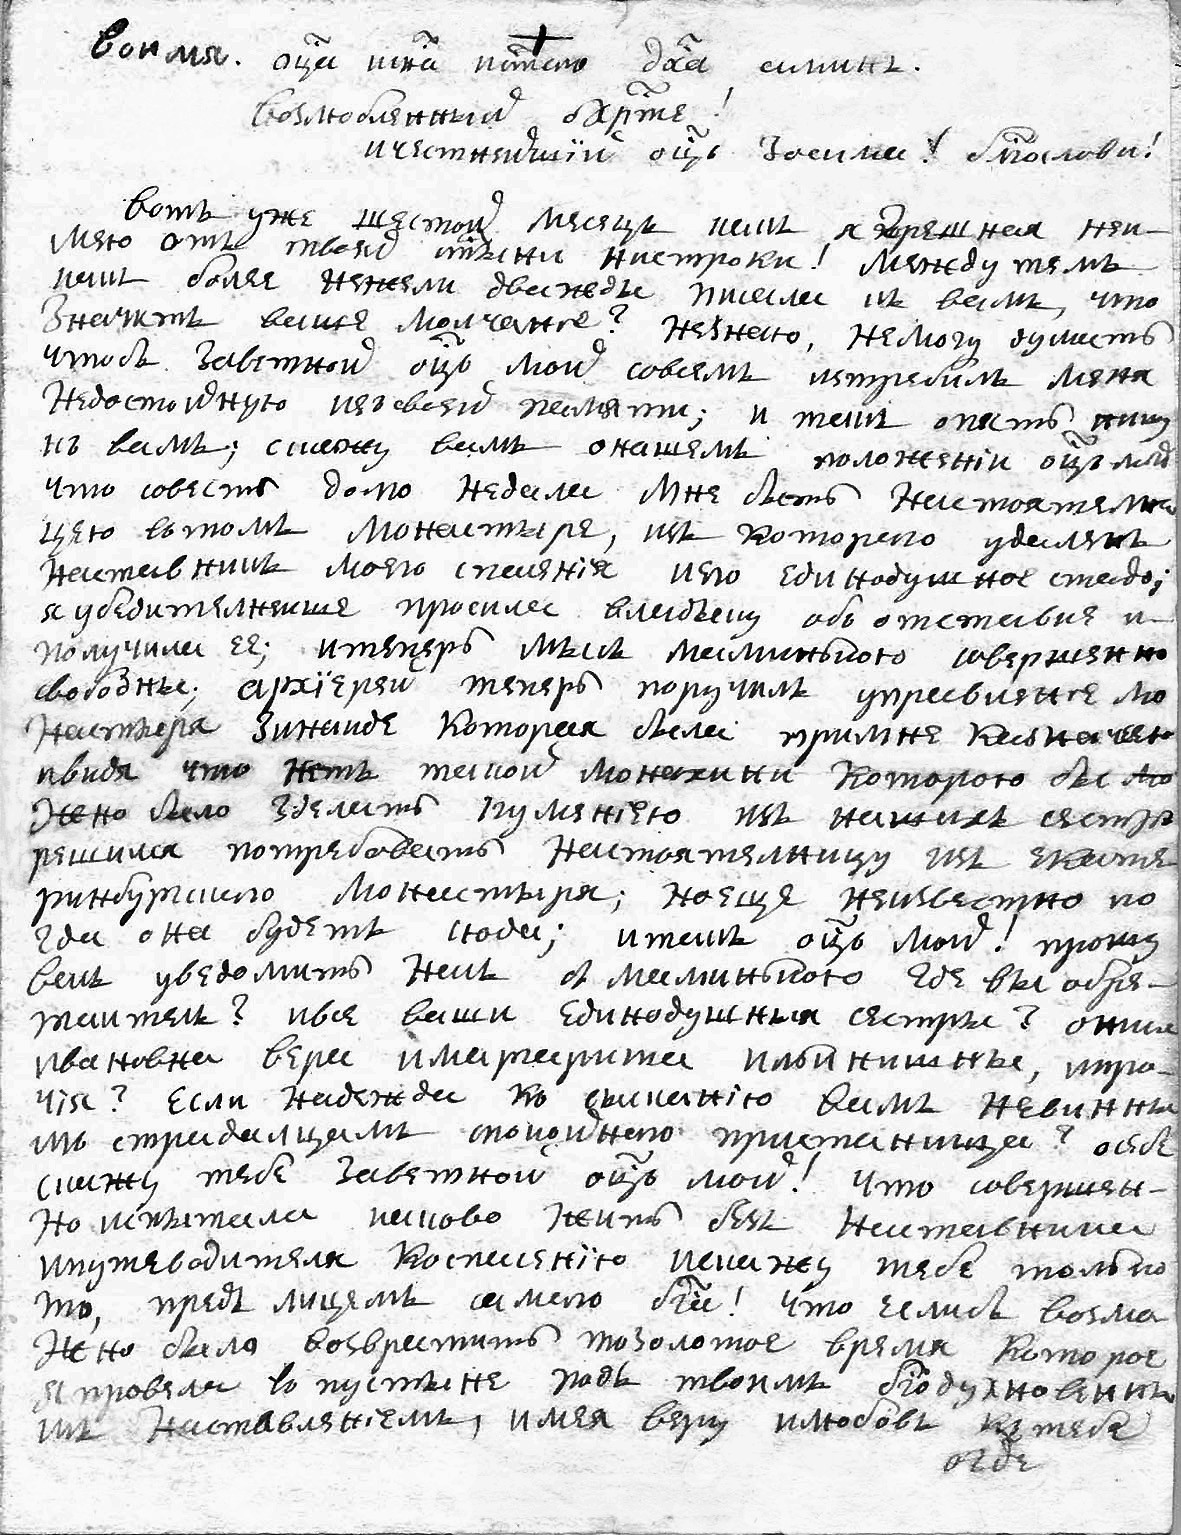 Воимя. оц҃а исн҃а ист҃аго дх҃а аминь.
Возлюбленный охр҃те!
ичестнейшїй оц҃ъ Зосима! бл҃гослови!
Вотъ уже шестой месяцъ какъ я грешная неи-
мею отъ твоей ст҃ыни нистроки! Между темъ
какъ более нежели дважды писала къ вамъ, что
Значитъ ваше молчание? Незнаю, немогу думать
чтобъ Заветной оц҃ъ мой совсемъ истребилъ меня
недостойную изъсвоей памяти; и такъ опять пишу
къ вамъ; скажу вамъ онашемъ положенїи оц҃ъ мой
что совесть долго недала мне быть Настоятелни
цею вътомъ монастыре, изъ которого удаленъ
Наставникъ моего спасенїя иего единодушное стадо;
я убедителнейше просила владыку объ отставке и
получила ее; итеперь мысъ маминькою совершенно
свободны; архїерей теперь поручилъ управление мо
настыря Зинаиде которая была примне Казначеею
ивидя что нетъ такой монахини которою бы мо
жно было Зделать Игуменїею изъ нашихъ сестръ
решился потребовать настоятелницу изъ екате
ринбурскаго монастыря; ноеще неизвестно ко
гда она будетъ сюда; итакъ оц҃ъ мой! прошу
васъ уведомить насъ съ маминькою где вы обре-
таитесь? ивсе ваши единодушныя сестры? анна
ивановна вера имаргарита ильинишны, ипро-
чїя? Если надежда ко сысканїю вамъ невинны
мъ страдалцамъ спокойнаго пристанища? осебе
скажу тебе Заветной оц҃ъ мой! что совершен-
но испытала каково жить безъ наставника
ипутеводителя Коспасенїю искажу тебе только
то, предъ лицемъ самаго бг҃а! что еслибъ возмо
жно было возвратить тозолотое время которое
я провела въ пустыне подъ твоимъ бг҃одухновенны
мъ Наставленїемъ, имея веру илюбовь къ тебе
огде